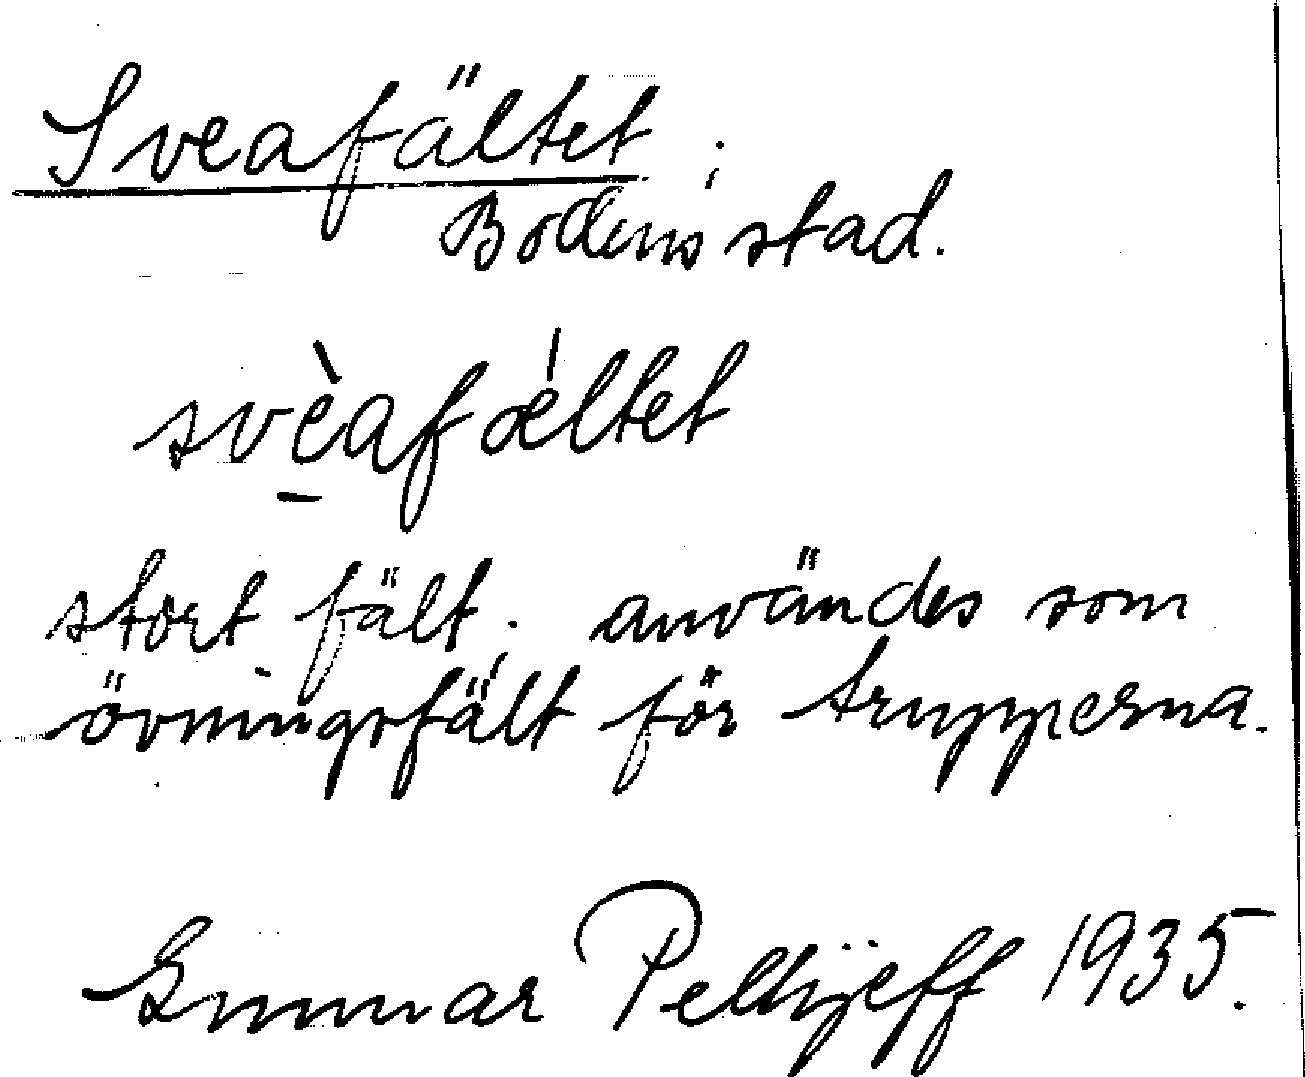 Sveafältet ;
Bodens stad.
svèafǽltet
stort fält; användes som
övningsfält för trupperna.
Gunnar Pellijeff 1935.